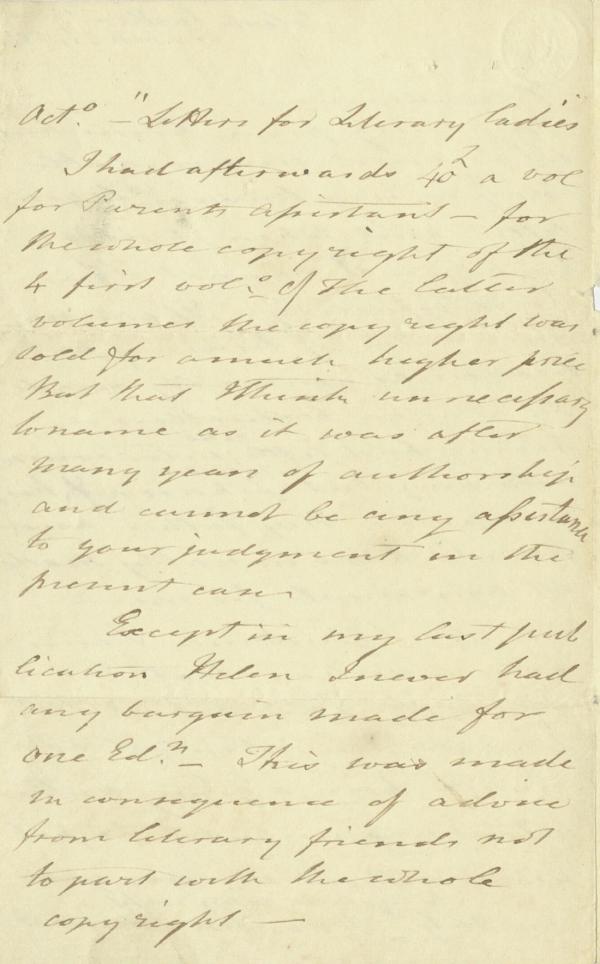 Oct.o – "Letters for Literary ladies
I had afterwards 40£ a vol
for Parents Assistant – for
the whole copy right of the
4 first vols. Of the latter
volumes the copy right was
sold for a much higher price
But that I think unnecessary
to name as it was after
many years of authorship
and cannot be any assistance
to your judgment in the
present case
Except in my last pub
lication Helen I never had
any bargain made for
one Edn. – This was made
in consequence of advice
from literary friends not
to part with the whole
copy right —